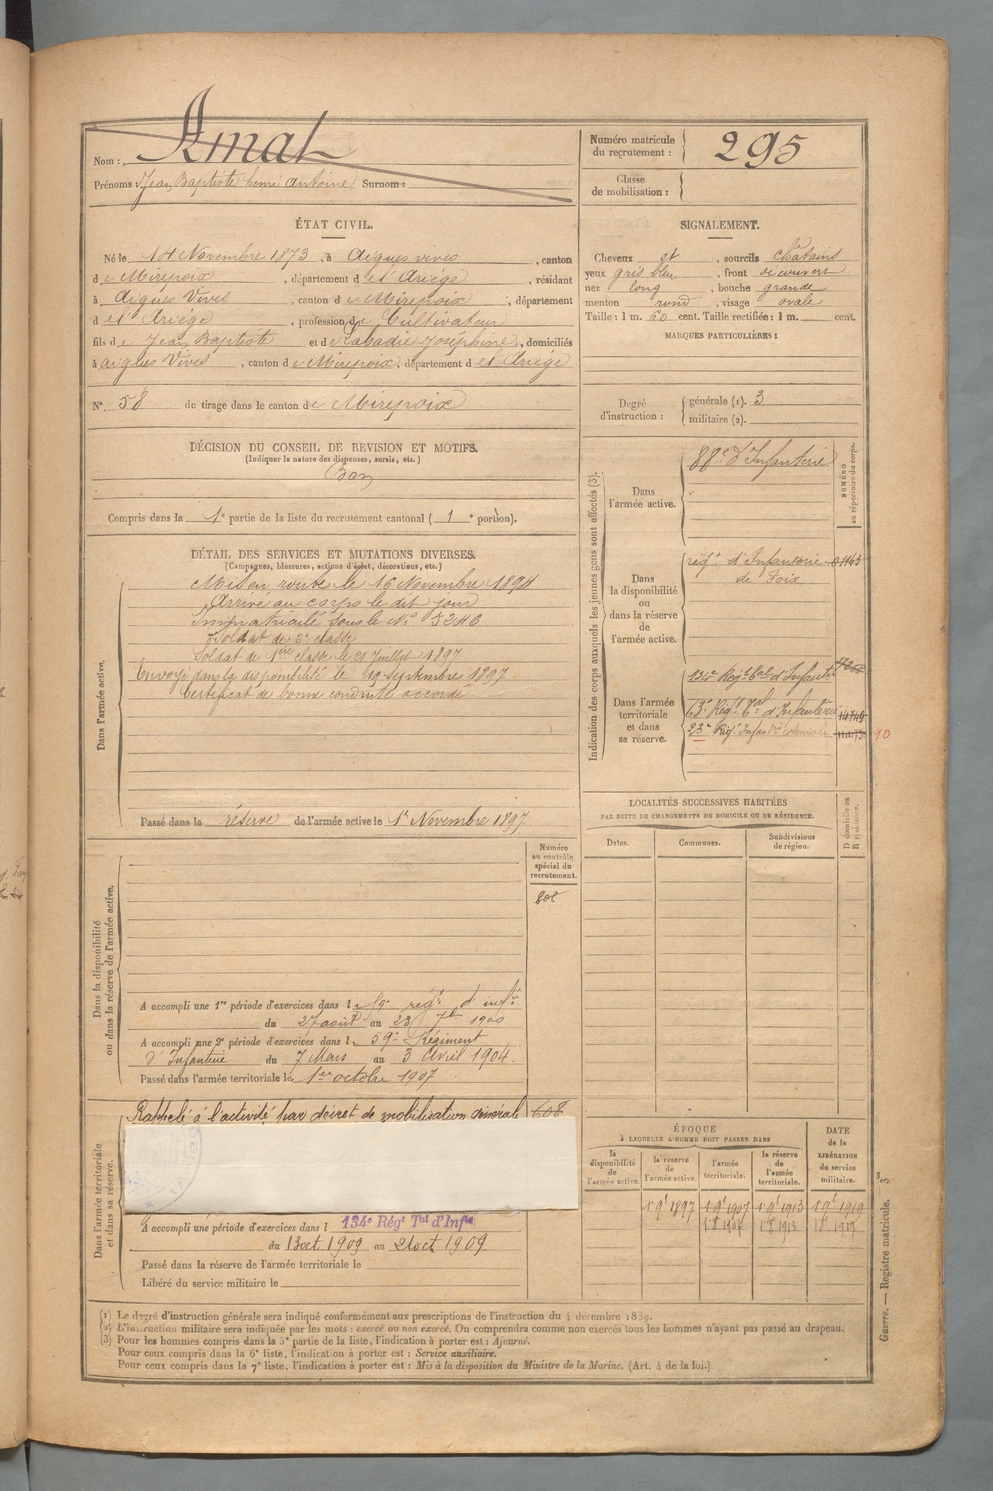 Nom : Amat
Prénoms : Jean Baptiste henri antoine Surnom :
Numéro matricule du recrutement : 295
Classe de mobilisation :
ÉTAT CIVIL.
Né le 14 Novembre 1873, à Aigues vives, canton
de Mirepoix, département de l'Ariége, résidant
à Aigues Vives, canton de Mirepoix, département
de l'Ariége, profession de Cultivateur
fils de Jean Baptiste et de Labadie Joséphine, domiciliés
à aigues Vives, canton de Mirepoix, département de l'Ariége
N° 58 de tirage dans le canton de Mirepoix
SIGNALEMENT.
Cheveux et, sourcils Chatains
yeux gris bleu, front découvert
nez long, bouche grande
menton rond, visage ovale
Taille : 1 m. 60 cent. Taille rectifiée : 1 m. cent.
MARQUES PARTICULIÈRES :
Degré d'instruction : générale (1). 3
militaire (2).
DÉCISION DU CONSEIL DE REVISION ET MOTIFS.
(Indiquer la nature des dispenses, sursis, etc.)
Bon
Compris dans la 1e partie de la liste du recrutement cantonal ( 1 e portion).
DÉTAIL DES SERVICES ET MUTATIONS DIVERSES.
(Campagnes, blessures, actions d'éclat, décorations, etc.)
Dans l'armée active.
Mis en route le 16 Novembre 1894
Arrivé au corps le dit jour
Immatriculé sous le N° 5240
Soldat de 2e classe
Soldat de 1ère classe le 21 Juillet 1897
Envoyé dans la disponibilité le 19 Septembre 1897
Certificat de bonne conduite accordé
Passé dans la réserve de l'armée active le 1er Novembre 1897
Indication des corps auxquels les jeunes gens sont affectés (3).
NUMÉRO au répertoire du corps.
Dans l'armée active.
88e d'Infanterie
Dans la disponibilité ou dans la réserve de l'armée active.
régt. d'Infanterie
de Foix
Dans l'armée territoriale et dans sa réserve.
134e Régt Tal d'Infant
63e Régt Tal d'Infanterie
23e Régt Infant coloniale
10
LOCALITÉS SUCCESSIVES HABITÉES
PAR SUITE DE CHANGEMENTS DE DOMICILE OU DE RÉSIDENCE.
Dates.
Communes.
Subdivisions de région.
D domicile ou R résidence.
Dans la disponibilité ou dans la réserve de l'armée active.
Numéro au contrôle spécial du recrutement.
A accompli une 1re période d'exercices dans le 59e régt. d'infie
du 27 août au 23 7bre 1900
A accompli une 2e période d'exercices dans le 59e Régiment
d'Infanterie du 7 Mars au 3 Avril 1904.
Passé dans l'armée territoriale le 1er octobre 1907
Dans l'armée territoriale et dans sa réserve.
Rappelé à l'activité par décret de mobilisation générale
608
A accompli une période d'exercices dans l 134e Régt Tal d'Infie
du 13 oct 1909 au 21 oct 1909
Passé dans la réserve de l'armée territoriale le
Libéré du service militaire le
ÉPOQUE
À LAQUELLE L'HOMME DOIT PASSER DANS
la disponibilité de l'armée active.
la réserve de l'armée active.
l'armée territoriale.
la réserve de l'armée territoriale.
DATE de la LIBÉRATION du service militaire.
1 9bre 1897 1 9bre 1907 1 9bre 1913 1 9bre 1919
Guerre. — Registre matricule.
(1) Le degré d'instruction générale sera indiqué conformément aux prescriptions de l'instruction du 4 décembre 1889.
(2) L'instruction militaire sera indiquée par les mots : exercé ou non exercé. On comprendra comme non exercés tous les hommes n'ayant pas passé au drapeau.
(3) Pour les hommes compris dans la 5e partie de la liste, l'indication à porter est : Ajourné.
Pour ceux compris dans la 6e liste, l'indication à porter est : Service auxiliaire.
Pour ceux compris dans la 7e liste, l'indication à porter est : Mis à la disposition du Ministre de la Marine. (Art. 4 de la loi.)